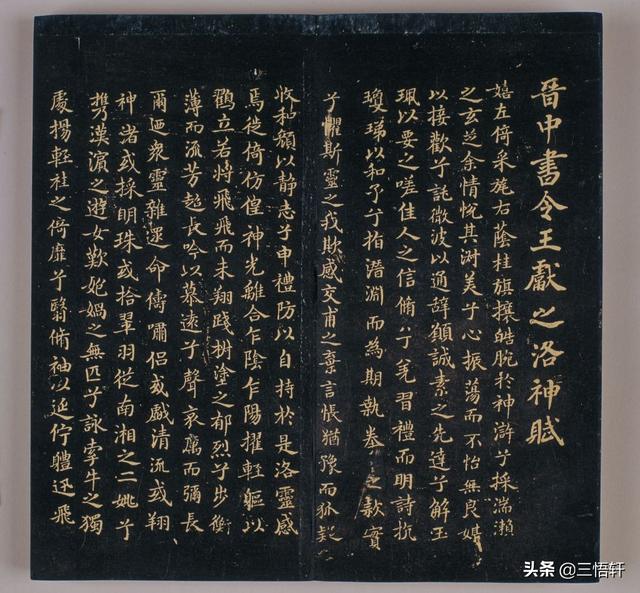 晉中書令王獻之洛神賦
嬉左倚采旄右蔭桂旗攘皓腕於神滸兮採湍瀨
之玄芝余情悅其淑美兮心振蕩而不怡無良媒
以接歡兮託微波以通辭願誠素之先達兮解玉
珮以要之嗟佳人之信脩兮羌習禮而明詩抗
瓊珶以和予兮指潛淵而為期執眷之款實
兮懼斯靈之我欺感交甫之棄言悵猶豫而狐疑
收和顏以靜志兮申禮防以自持於是洛靈感
焉徙倚仿偟神光離合乍陰乍陽擢輕軀以
鶴立若將飛飛而未翔踐椒塗之郁烈兮步衡
薄而流芳超長吟以慕遠兮聲哀厲而彌長
爾迺衆靈雜遝命儔嘯侶或戲清流或翔
神渚或採明珠或拾翠羽從南湘之二姚兮
攜漢濱之遊女歎妑媧之無匹兮詠牽牛之獨
處揚輕袿之倚靡兮翳脩袖以延佇體迅飛
头条 @三悟轩